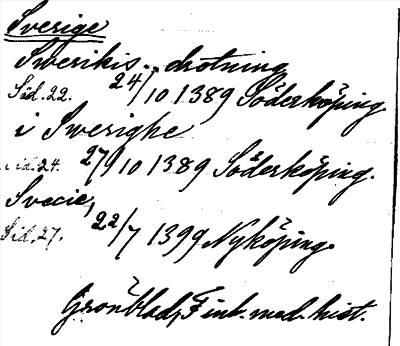 Sverige
Swerikis drotning
Sid. 22. 24/10 1389 Söderköping
i Swerighe
Sid. 24. 27/10 1389 Söderköping.
Svecie,
Sid. 27. 22/7 1399 Nyköping.
Grönblad, Finl. med. hist.